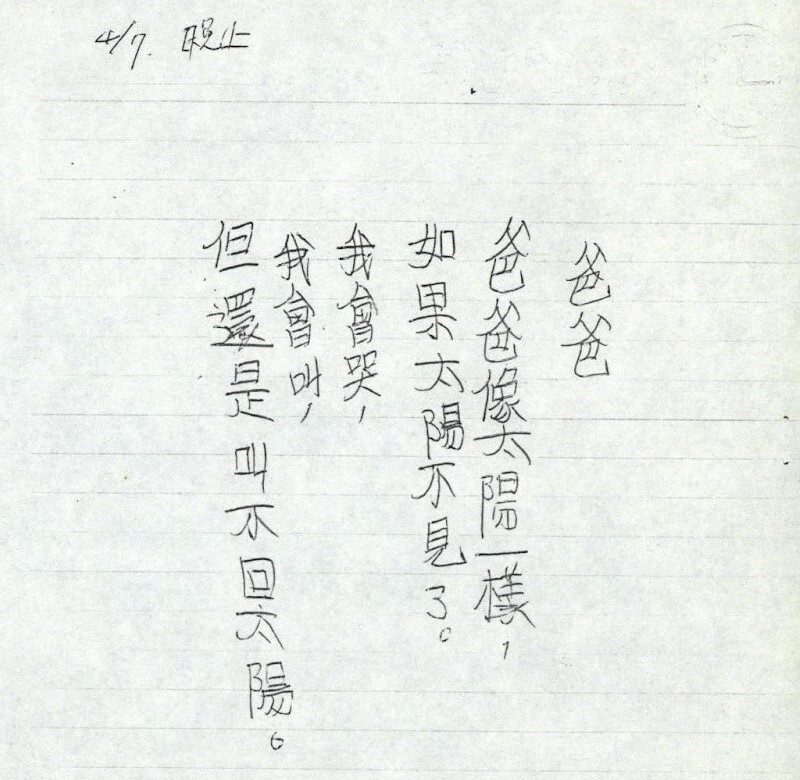 4/7. 晚上
爸爸
爸爸像太陽一樣，
如果太陽不見了。
我會哭，
我會叫，
但還是叫不回太陽。